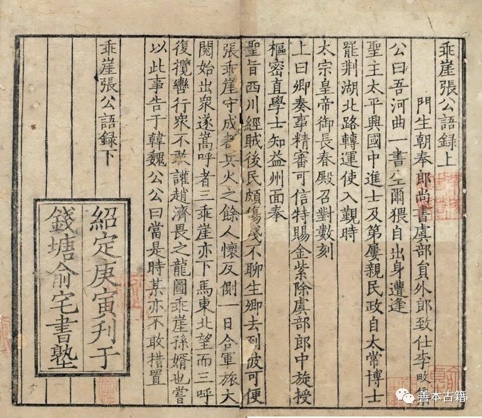 乖崖張公語録上
門生朝奉郎尚書虞部員外郎致仕李畋
公曰吾河曲一書生爾猥自出身遭逢
聖主太平興國中進士及第屢親民政自太常博士
罷荆湖北路轉運使入觀時
太宗皇帝御長春殿召對數刻
上曰卿奏事精審可信特賜金紫除虞部郎中旋授
樞密直學士知益州面奉
聖旨西川經賊後民頗傷殘不聊生卿去到彼可便
張乖崖守成者兵火之餘人懷反側一日合軍旅大
閱始出衆遂嵩呼者三乖崖亦下馬東北望而三呼
復攬轡行衆不敢讙趙濟畏之龍圖乖崖孫壻也嘗
以此事告于韓魏公公曰當是時某亦不敢措置
乖崖張公語録下
紹定庚寅刋于
錢塘俞宅書塾
善本古籍